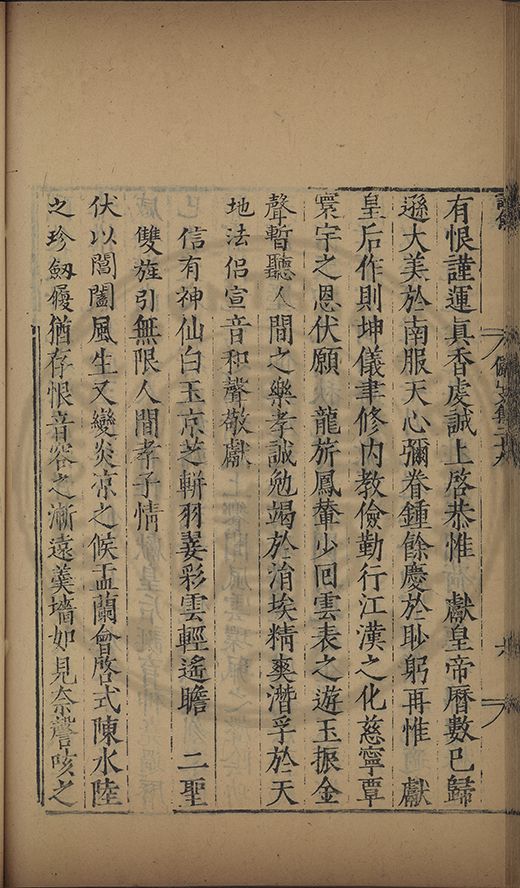 有恨謹運眞香虔誠上啓恭惟　獻皇帝曆數已歸
遜大美於南服天心彌眷鍾餘慶於眇躬再惟　獻
皇后作則坤儀聿修内教儉勤行江漢之化慈寧覃
寰宇之恩伏願　龍旂鳳輦少回雲表之遊玉振金
聲暫聽人間之樂孝誠勉竭於涓埃精爽潛孚於天
地法侶宣音和聲敬獻
信有神仙白玉京芝軿羽蓑彩雲輕遙瞻　二聖
雙旌引無限人間孝子情
伏以閶闔風生又變炎涼之候盂蘭會啓式陳水陸
之珍劔履猶存恨音容之漸遠羹墻如見奈謦咳之